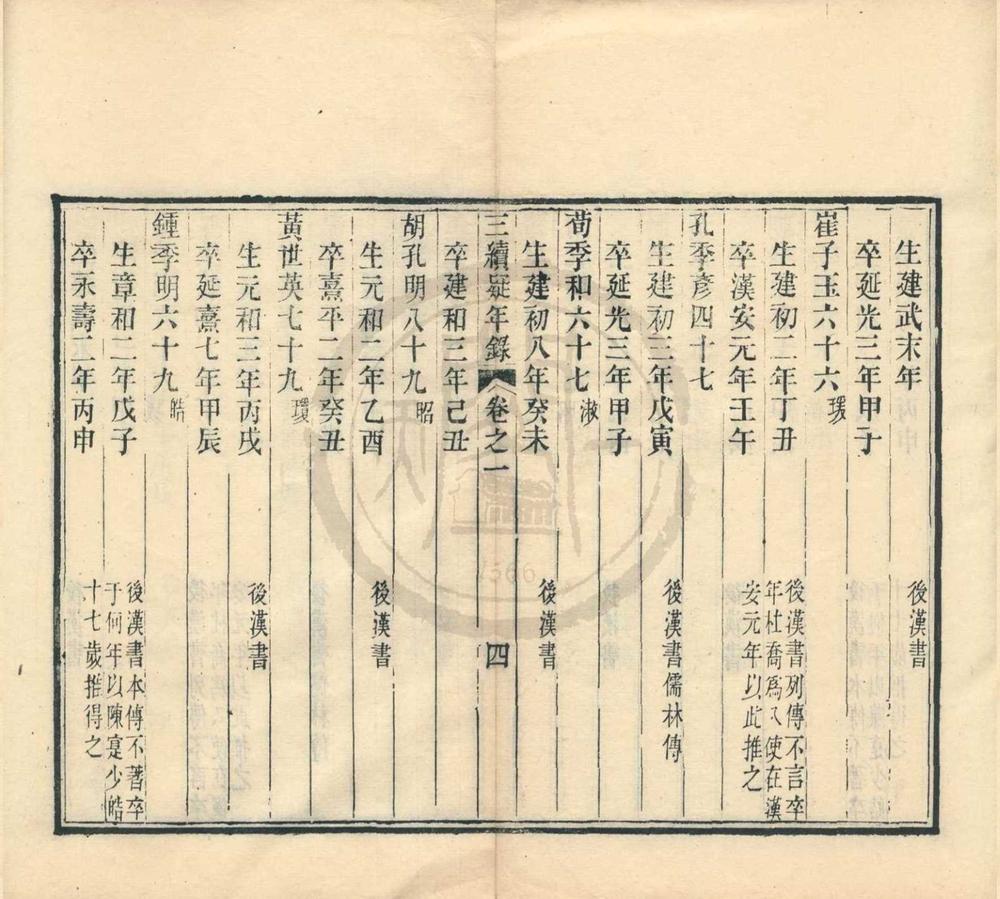 生建武末年　後漢書
卒延光三年甲子
崔子玉六十六瑗
生建初二年丁丑　後漢書列傳不言卒
年杜喬爲八使在漢
安元年以此推之
卒漢安元年壬午
孔季彥四十七
生建初三年戊寅　後漢書儒林傳
卒延光三年甲子
荀季和六十七淑
生建初八年癸未　後漢書
三續疑年錄　卷之一　四
卒建和三年己丑
胡孔明八十九昭
生元和二年乙酉　後漢書
卒熹平二年癸丑
黃世英七十九瓊
生元和三年丙戌　後漢書
卒延熹七年甲辰
鍾季明六十九皓
生章和二年戊子　後漢書本傳不著卒
于何年以陳寔少皓
十七歲推得之
卒永壽二年丙申
1566